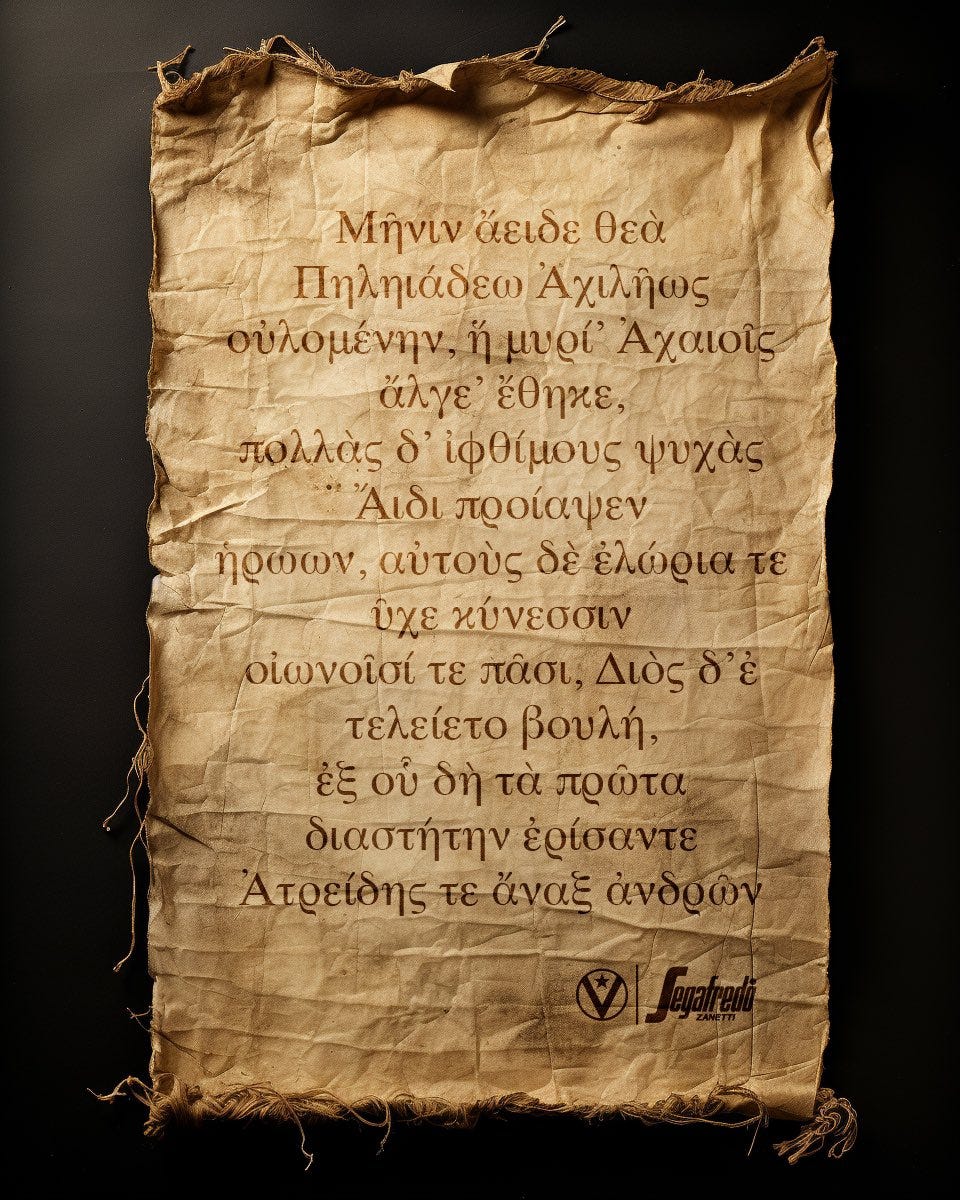 Μῆνιν ἄειδε θεὰ
Πηληιάδεω Ἀχιλῆως
οὐλομένην, ἥ μυρί’ Ἀχαιοῖς
ἄλγε’ ἔθηκε,
πολλὰς δ’ ἰφθίμους ψυχὰς
Ἄιδι προίαψεν
ἡρωων, αὐτοὺς δὲ ἑλώρια τε
ῦχε κύνεσσιν
οἰωνοῖσί τε πᾶσι, Διὸς δ’ἐ
τελείετο βουλή,
ἐξ οὗ δὴ τὰ πρῶτα
διαστήτην ἐρίσαντε
Ἀτρείδης τε ἄναξ ἀνδρῶν
V Segafredo
ZANETTI